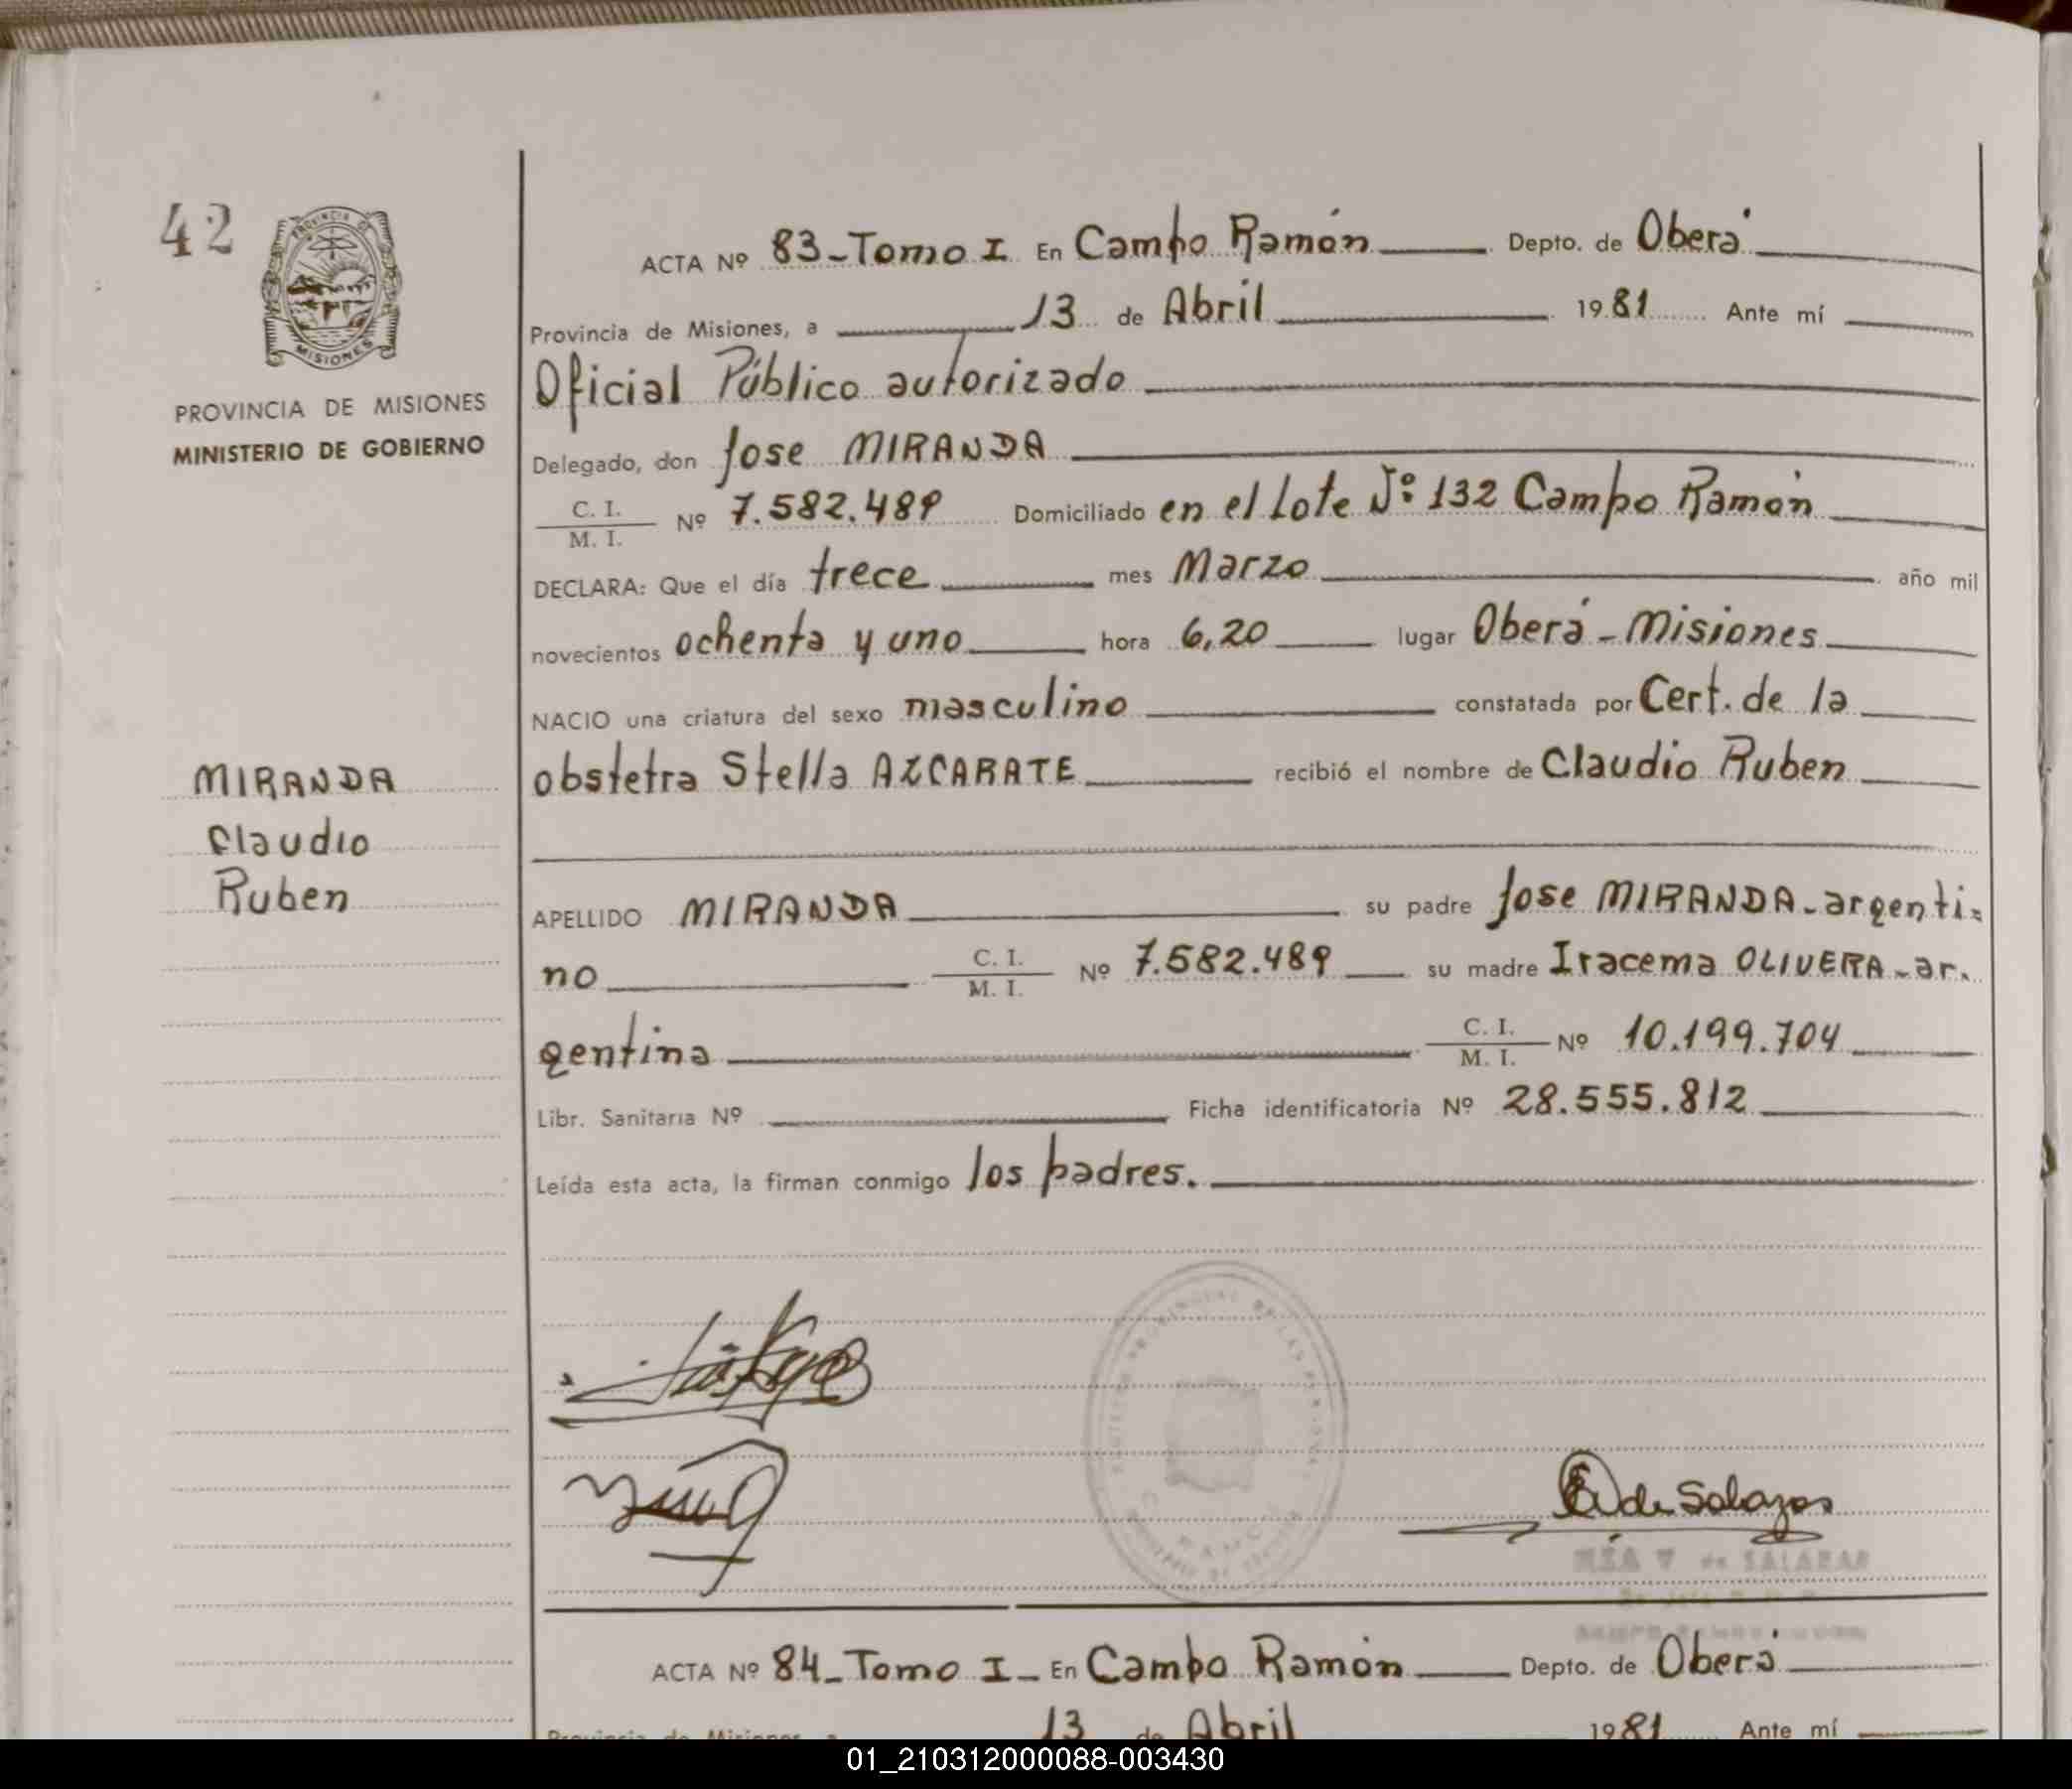 42
PROVINCIA DE MISIONES
PROVINCIA DE MISIONES
MINISTERIO DE GOBIERNO
MIRANDA
Claudio
Ruben
ACTA Nº 83-Tomo I En Campo Ramón Depto. de Oberá
Provincia de Misiones, a 13 de Abril 1981 Ante mí
Oficial Público autorizado
Delegado, don Jose MIRANDA
C. I.
M. I. Nº 7.582.489 Domiciliado en el Lote Nº 132 Campo Ramón
DECLARA: Que el día trece mes Marzo año mil
novecientos ochenta y uno hora 6,20 lugar Oberá - Misiones
NACIO una criatura del sexo masculino constatada por Cert. de la
obstetra Stella AZCARATE recibió el nombre de Claudio Ruben
APELLIDO MIRANDA su padre Jose MIRANDA - argenti-
no C. I. M. I. Nº 7.582.489 su madre Iracema OLIVERA - ar-
gentina C. I. M. I. Nº 10.199.704
Libr. Sanitaria Nº Ficha identificatoria Nº 28.555.812
Leída esta acta, la firman conmigo los padres.
de Salazar
de SALAZAR
ACTA Nº 84-Tomo I- En Campo Ramón Depto. de Oberá
Provincia de Misiones, a 13 de Abril 1981 Ante mí
01_210312000088-003430